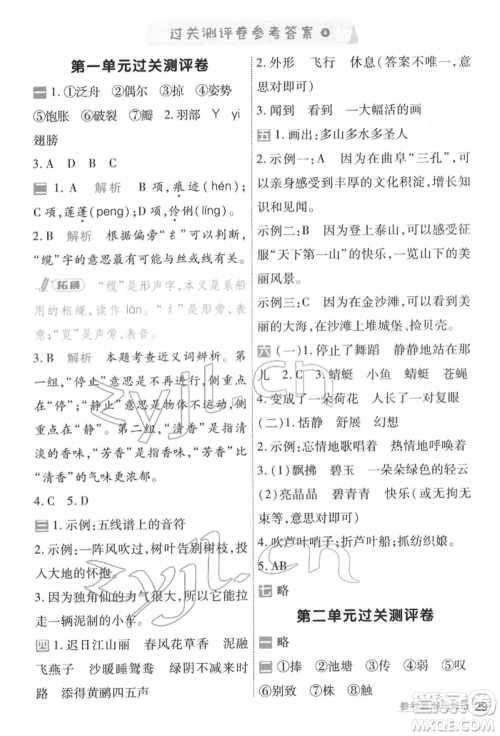 过关测评卷参考答案
第一单元过关测评卷
一 1.①泛舟 ②偶尔 ③掠 ④姿势
⑤饱胀 ⑥破裂 ⑦瓣 2.羽部 Y yi
翅膀
3.A D B C
二 1.A 解析 B项,痕迹(hén);
C项,莲蓬(peng);D项,伶俐(líng)。
2.B 解析 根据偏旁“纟”可以判断,
“缆”字的意思最有可能与丝或线有关。
拓展 “缆”是形声字,本义是系船
用的粗绳,读作 lǎn。“纟”为形旁,表
意;“览”是声旁,表音。
3.B 解析 本题考查近义词辨析。第
一组,“停止”意思是不再进行,侧重点
在“停”;“静止”意思是不运动,侧重点
在“静”。第二组,“清香”的气味清淡
香,味道不浓;“芳香”与“香味”不与
“清香”的气味更浓更重。
4.C 5.D
三 1.示例:五线谱上的音符
2.示例:一阵风吹过,树叶告别树枝,投入
大地的怀抱。
3.示例:独角仙的力气很大,所
以走路的样子像
走一辆泥制的小车。
四 1.迟日江山丽 春风花草香 泥融
飞燕子 沙暖睡鸳鸯 绿阴不减来时
路 添得黄鹂四五声
2.外形 飞行 休息(答案不唯一,
意思对即可)
3.闻到 一大幅活的画
五 1.画出:多山多水多圣人
2.示例一:A 因为在曲阜“三孔”,可
以亲身感受到丰厚的文化积淀,增长历
史知识。
示例二:B 因为登上泰山,可以感受
征服“天下第一山”的快乐,一览泰山的美
丽风景。
示例三:C 因为在金沙滩,可以欣赏美
丽的大海,在沙滩上堆城堡、捡贝壳。
六 (一)1.停止了舞蹈 静静地站在那
儿 2.② 3.蜻蜓 小鱼 蜻蜓 苍蝇
4.变成了一朵荷花 长出了一对复眼
(二)1.恬静 舒展 幻想
2.示例:忘情地歌唱着 热情地呼唤着
3.(1)飘拂 碧玉 一朵朵绿色的轻云
(2)亮晶晶 碧青青 快乐(或无拘无
束等,意思对即可)
4.吹芦叶哨子;折芦叶船;抓纺织娘。
七 略
第二单元过关测评卷
一 略
二 ①捧 ②池塘 ③撞 ④传 ⑤弱
⑥别致 ⑦守 ⑧欣赏
29